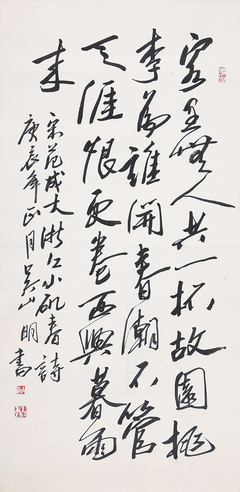 客里無人共一杯故園桃
李為誰開春潮不管
天涯恨更卷西興暮雨
来
宋范成大浙江小矶春詩
庚辰年正月吴山明書